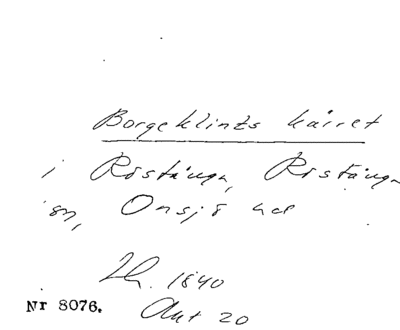 Borgeklints kärret
i Röstånga, Röstånga
sn, Onsjö hd
Lh. 1840
Akt 20
Nr 8076.